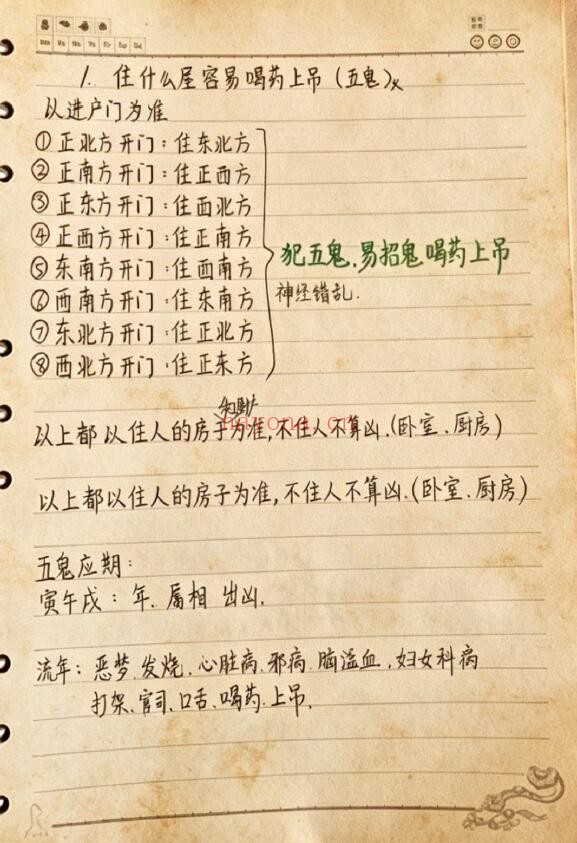 1. 住什么屋容易喝药上吊(五鬼)
以进户门为准
①正北方开门:住东北方
②正南方开门:住正西方
③正东方开门:住西北方
④正西方开门:住正南方
⑤东南方开门:住西南方
⑥西南方开门:住东南方
⑦东北方开门:住正北方
⑧西北方开门:住正东方
犯五鬼.易招鬼喝药上吊
神经错乱.
以上都以住人的房子为准,不住人不算凶.(卧室.厨房)
以上都以住人的房子为准,不住人不算凶.(卧室.厨房)
五鬼应期:
寅午戌:年.属相 出凶.
流年:恶梦.发烧.心脏病.邪病.脑溢血,妇女科病
打架.官司.口舌.喝药.上吊.